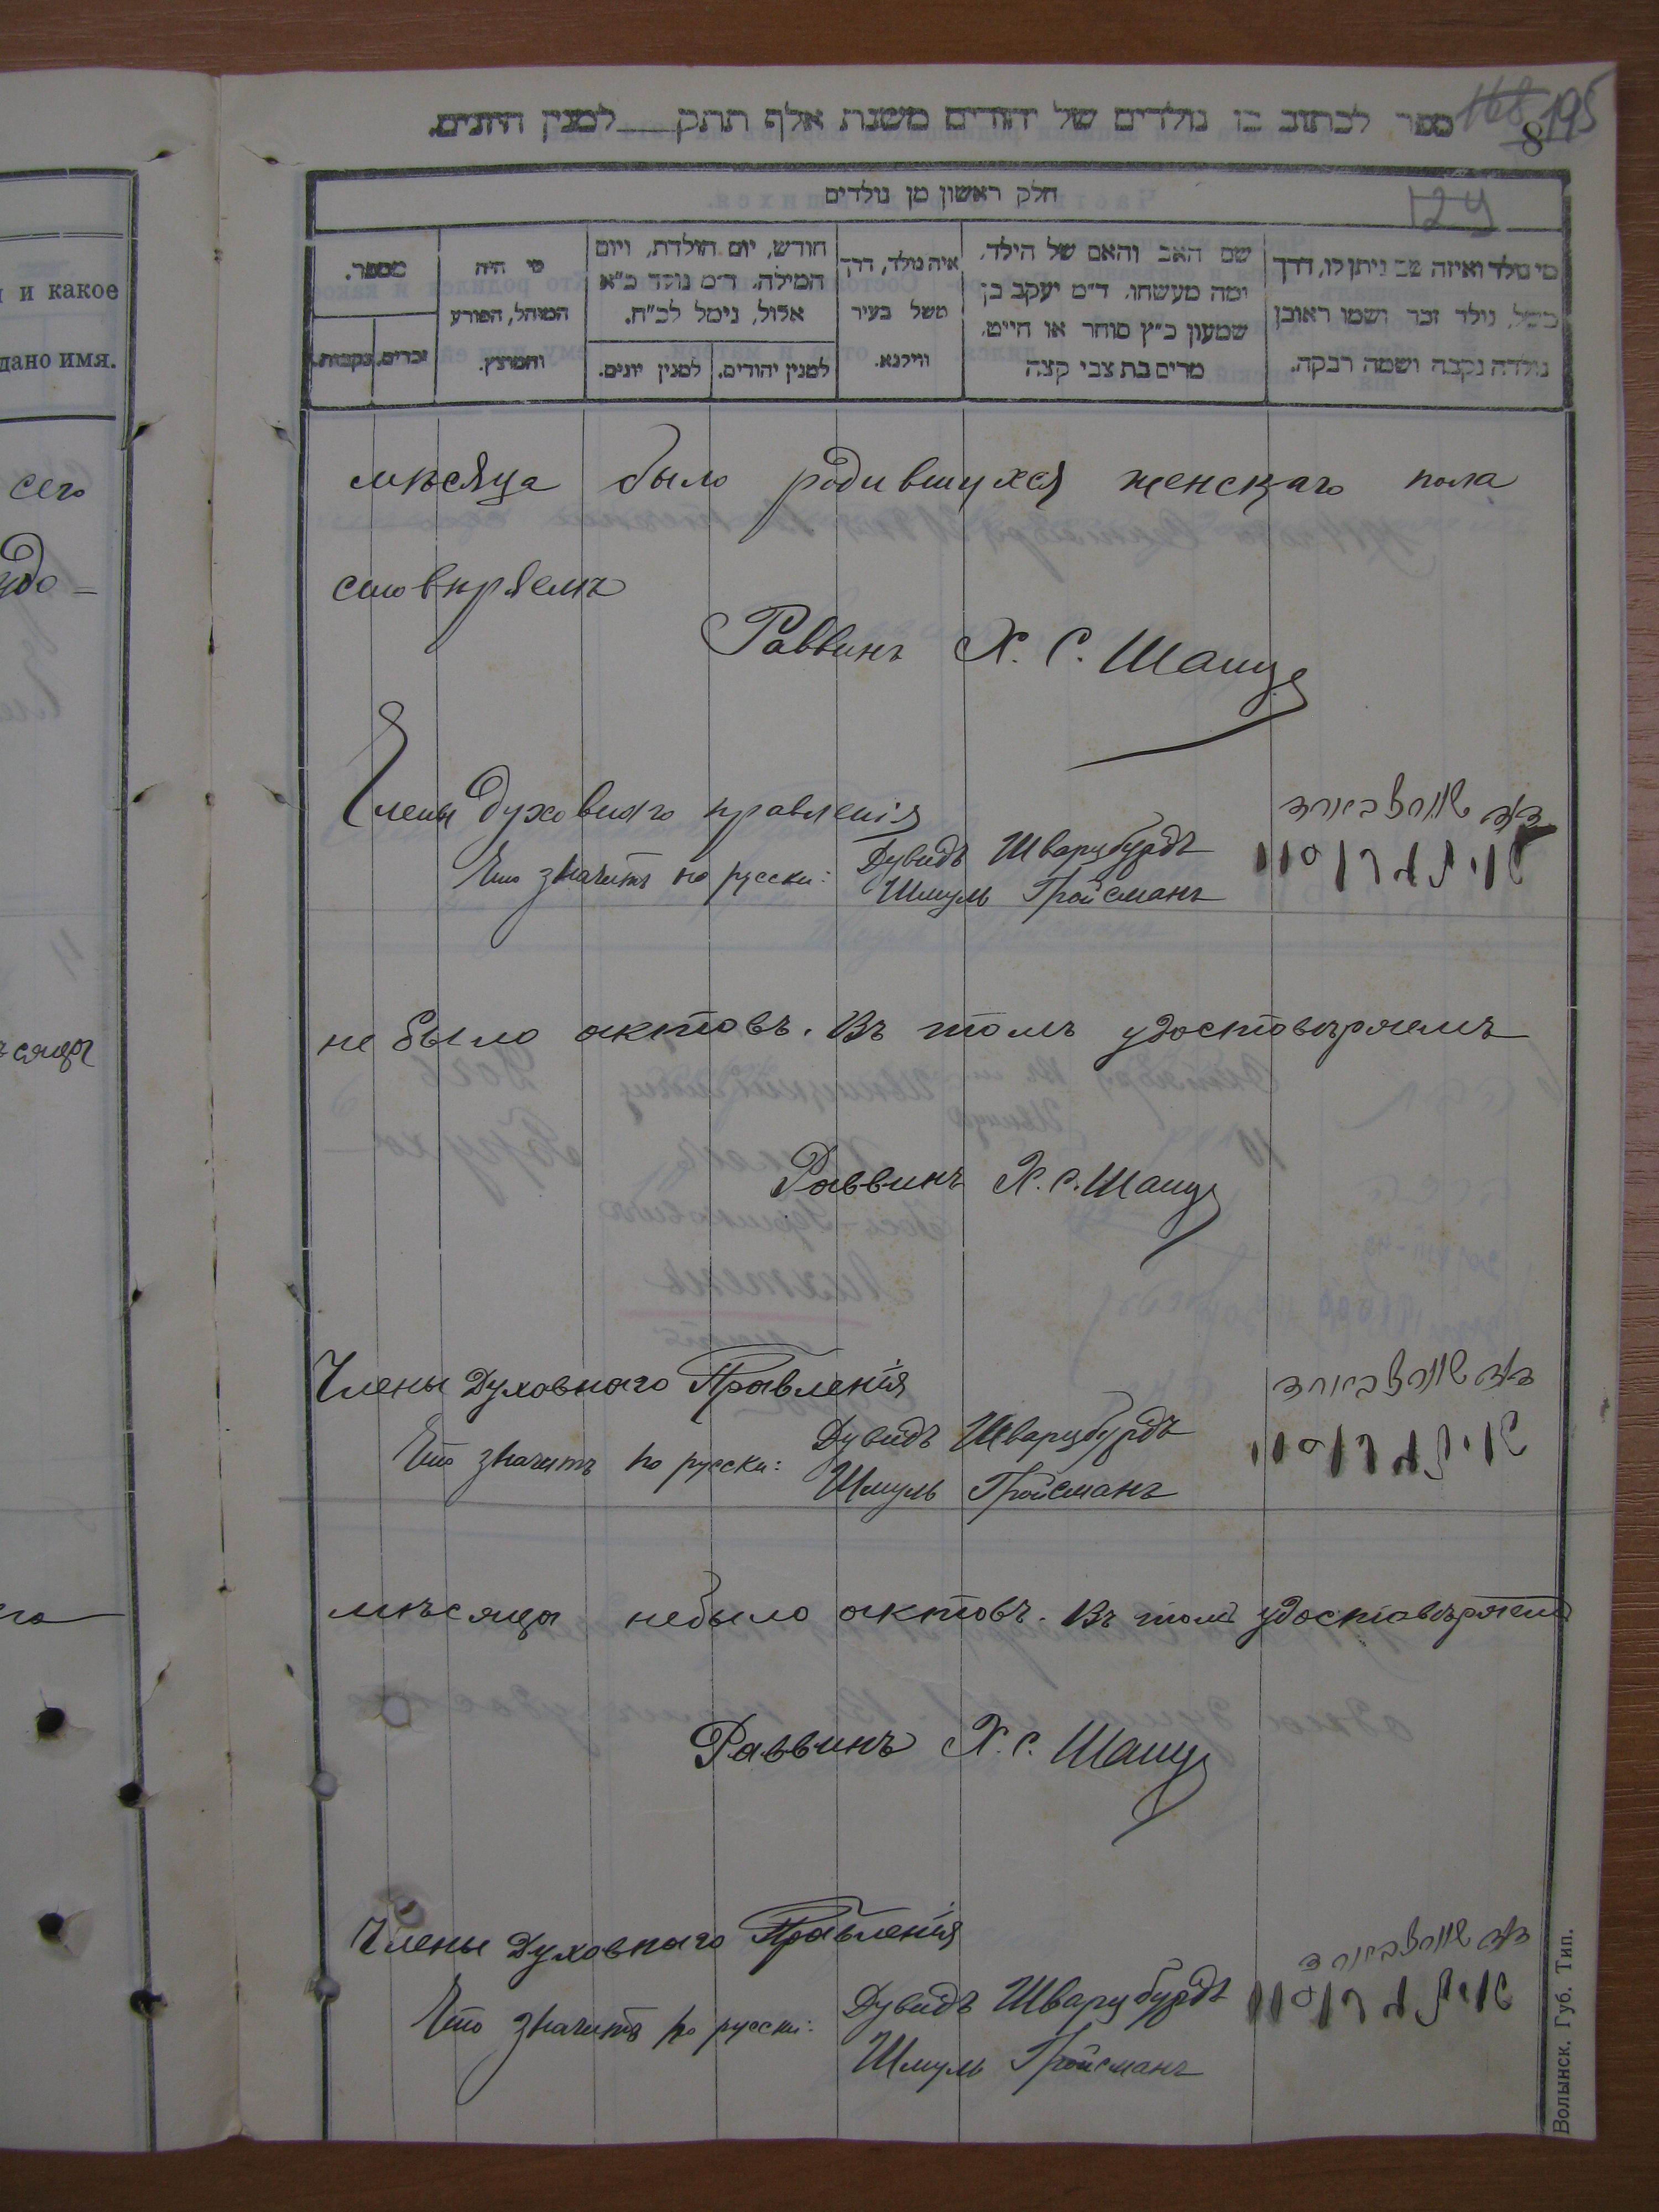 168 195
8
ספר לכתוב בו נולדים של יהודים משנת אלף תתק___למנין היונים.
חלק ראשון מן נולדים
124
מי נולד ואיזה שם ניתן לו, דרך משל, נולד זכר ושמו ראובן נולדה נקבה ושמה רבקה.
שם האב והאם של הילד, ומה מעשהו. ד״מ יעקב בן שמעון כ״ץ סוחר או חייט. מרים בת צבי קצה
איה נולד, דרך משל בעיר ווילנא.
חודש, יום הולדת, ויום המילה. ד״מ נולד כ״א אלול, נימל לכ״ח.
למנין יהודים.
למנין יונים.
מי היה המוהל, הפורע והמוצץ.
מספר.
זכרים.
נקבות.
и какое
дано имя.
сего
удо-
мѣсяца было родившихся женскаго пола
стовѣряемъ
Раввинъ Х. С. Шацъ
Члены духовнаго правленія
דוד שווארצבאורד
Что значитъ по русски: Дувидъ Шварцбурдъ
Шмуль Гройсманъ
не было актовъ. Въ томъ удостовѣряемъ
Раввинъ Х. С. Шацъ
Члены Духовнаго Правленія
דוד שווארצבאורד
Что значитъ по русски: Дувидъ Шварцбурдъ
Шмуль Гройсманъ
мѣсяца небыло актовъ. Въ томъ удостовѣряемъ
Раввинъ Х. С. Шацъ
Члены Духовнаго Правленія
דוד שווארצבאורד
Что значитъ по русски: Дувидъ Шварцбурдъ
Шмуль Гройсманъ
Волынск. Губ. Тип.